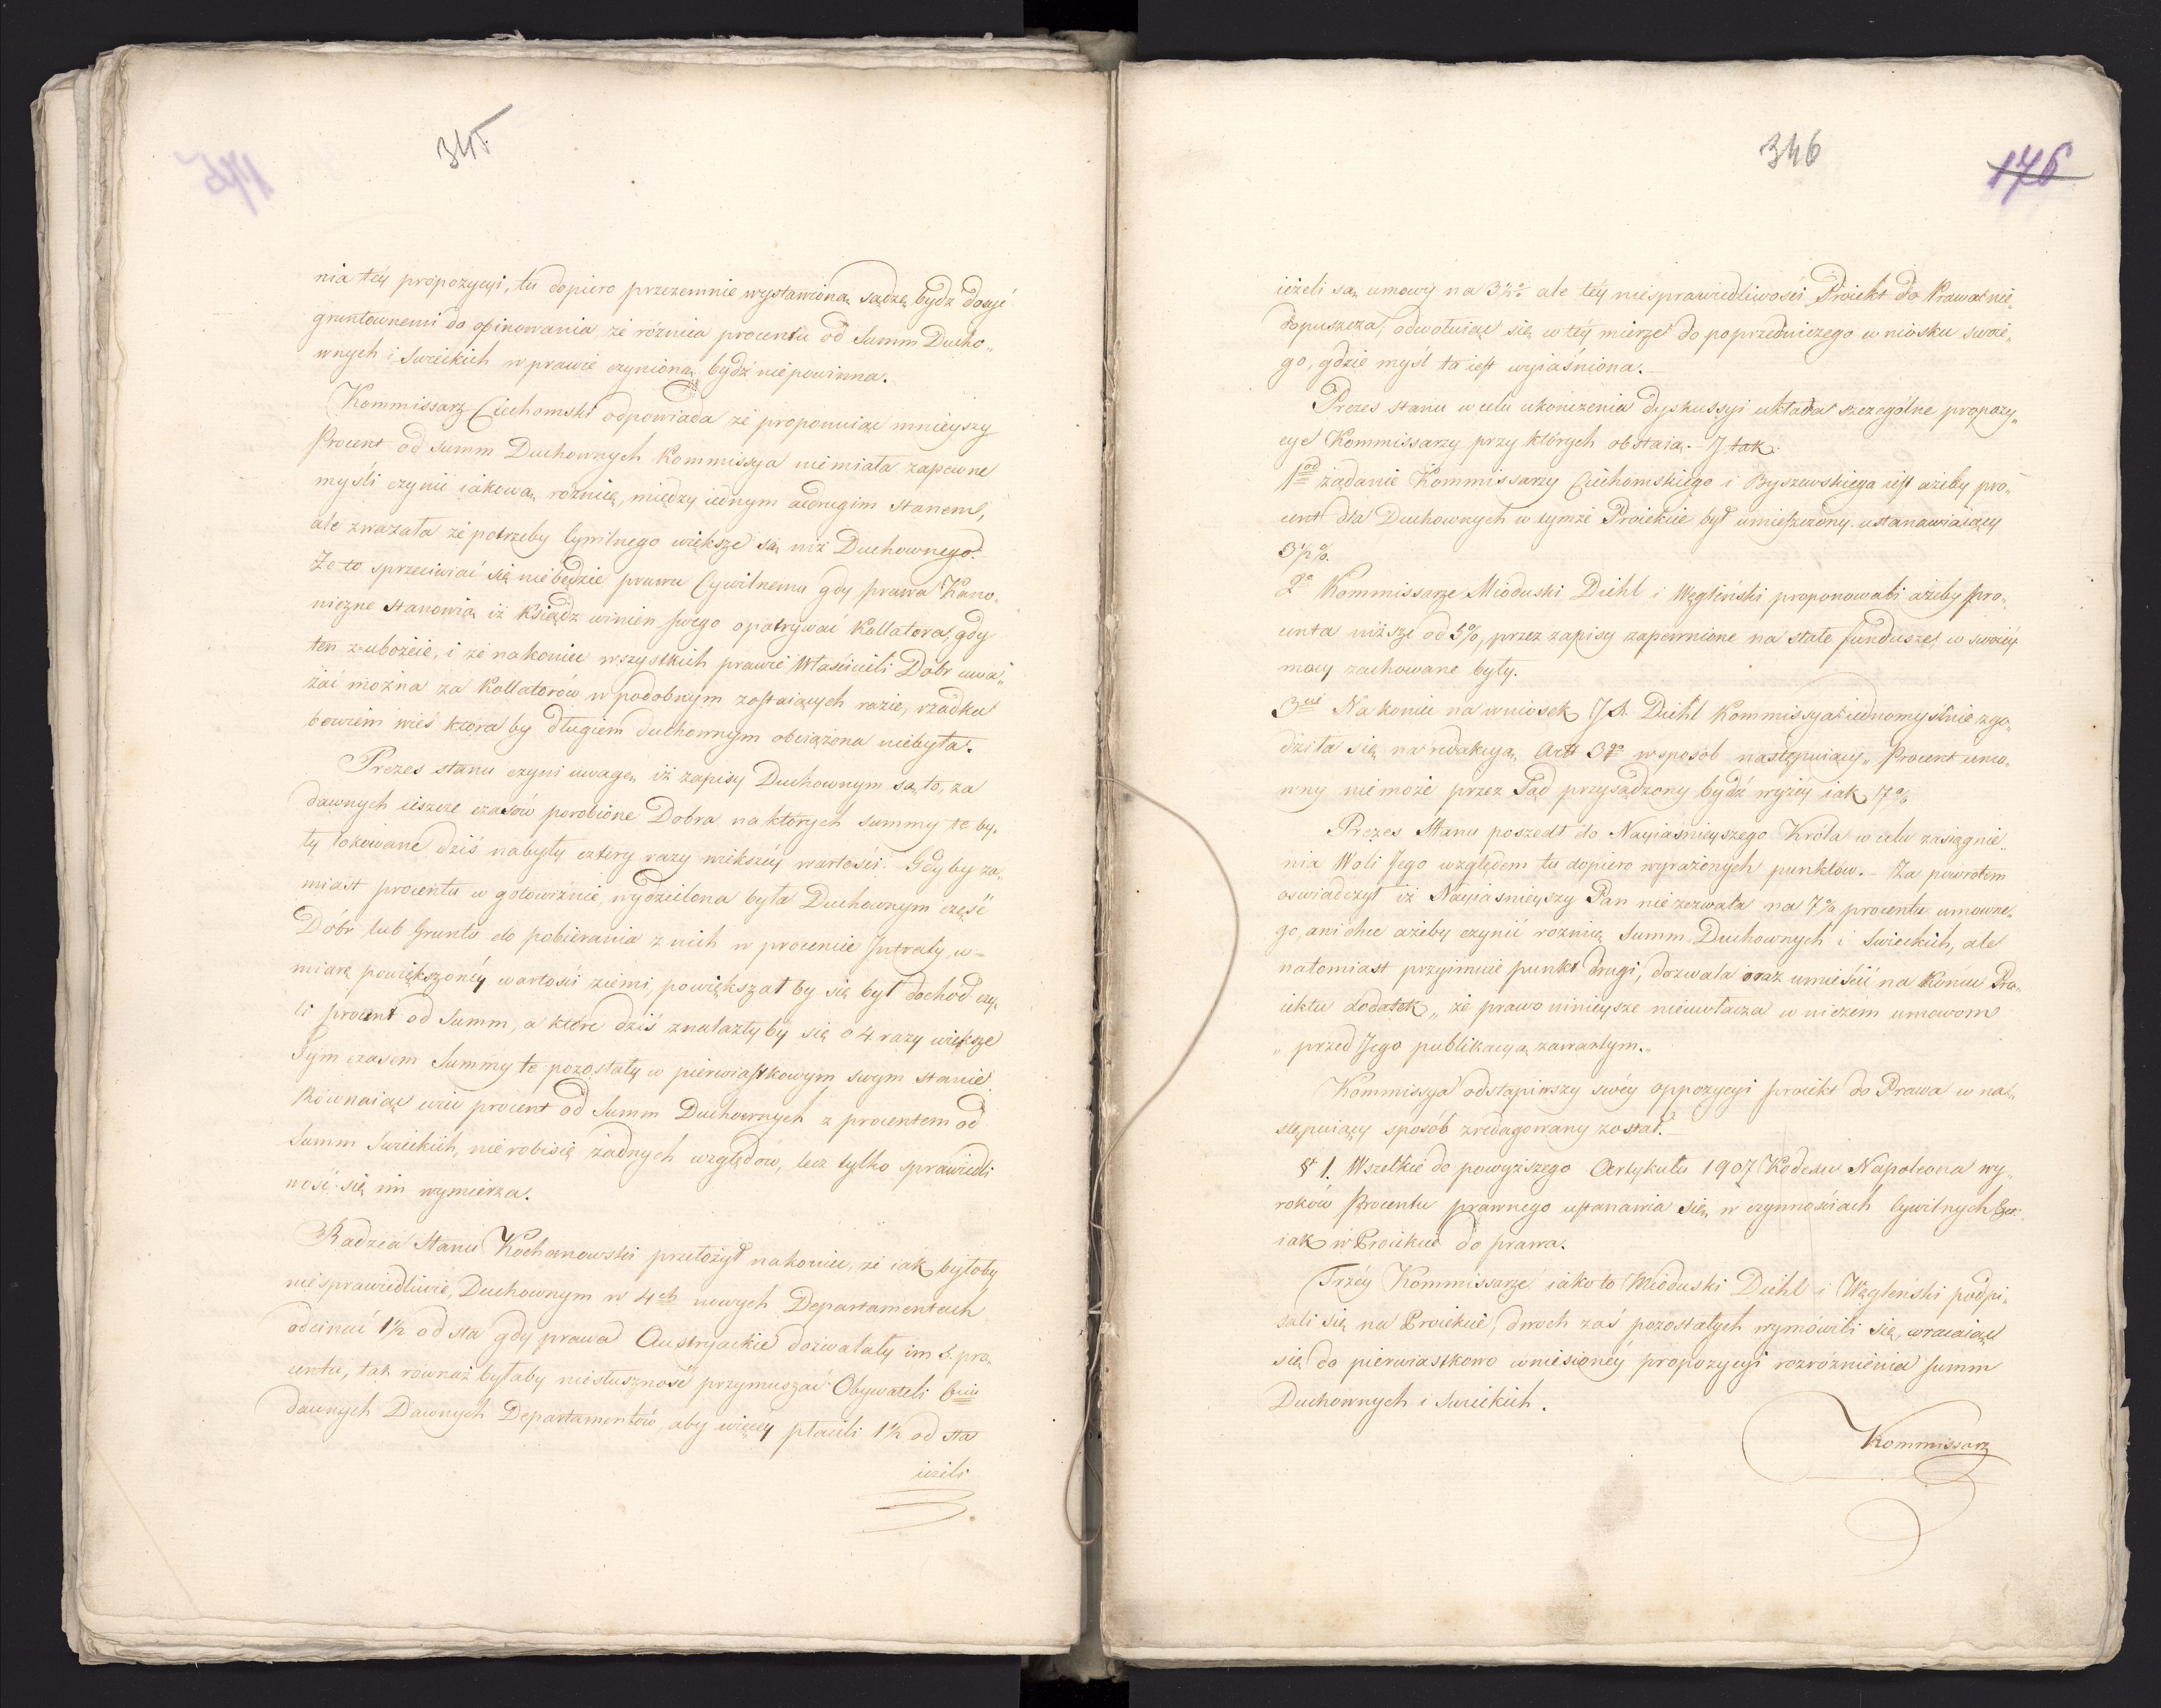 345
nia tey propozycyi, tu dopiero przezemnie wystawioną sądzę bydz dosyć
gruntownemi do opinowania, że różnica procentu od Summ Ducho„
wnych i Swieckich w prawie czynioną bydź niepowinna.
Kommissarz Ciechomski odpowiada że proponuiąc mnieyszy
Procent od Summ Duchownych Kommissya niemiała zapewne
myśli czynić iakową różnicę, między iednym adrugim Stanem,
ale zważała że potrzeby Cywilnego większe są niż Duchownego.
Że to sprzeciwiać się niebędzie prawu Cywilnemu gdy prawa Kano„
niczne Stanowią iż Ksiądz winien swego opatrywać Kollatora, gdy
ten zubożeie, i że nakoniec wszystkich prawie Właścicieli Dóbr uwa„
żać można za Kollatorów w podobnym zostaiących razie, rzadka
bowiem wieś ktora by długiem duchownym obciążona niebyła.
Prezes stanu czyni uwagę iż zapisy Duchownym są to, za
dawnych ieszcze czasów porobione Dobra na których summy te by„
ły lokowane dziś nabyły cztery razy większey wartości. Gdyby za„
miast procentu w gotowiźnie, wydzielona była Duchownym część
Dóbr lub Gruntu do pobierania z nich w procencie Intraty, w
miarę powiększoney wartości ziemi, powiększał by się był dochod czy„
li procent od Summ, a które dziś znalazły by się o 4. razy większe
Tym czasem Summy te pozostały w pierwiastkowym swym stanie.
Równaiąc więc procent od Summ Duchownych z procentem od
Summ Swieckich, nierobi się żadnych względów, lecz tylko sprawiedli
wość się im wymierza.
Radzca Stanu Kochanowski przełożył nakoniec, że iak byłoby
niesprawiedliwie, Duchownym w 4ch nowych Departamentach
odcinać 1½ od sta gdy prawa Austryackie dozwalały im 5. pro„
centu, tak równaż byłaby niesłuszność przymuszać Obywateli 6ciu
dawnych Dawnych Departamentów, aby więcey płacili 1½ od sta
ieżeli
346
176
ieżeli są umowy na 3½% ale tey niesprawiedliwości Proiekt do Prawa nie„
dopuszcza, odwołuiąc się w tey mierze do poprzedniczego wniosku swoie„
go, gdzie myśl ta iest wyiaśniona.
Prezes stanu w celu ukończenia dyskussyi układa szczególne propozy„
cye Kommissarzy przy których obstaią. I tak.
1od żądanie Kommissarzy Ciechomskiego i Byszewskiego iest ażeby pro„
cent dla Duchownych w tymże Proiekcie był umieszczony ustanawiaiący
3½%.
2o Kommissarze Mioduski Diehl i Węgleński proponowali ażeby pro„
centa niższe od 5%, przez zapisy zapewnione na stałe fundusze, w swoiey
mocy zachowane były.
3cie Na koniec na wniosek JP. Diehl Kommissya iednomyślnie zgo„
dziła się na redakcyą Artt 3go w sposób następuiący „Procent umo„
wny nie może przez Sąd przysądzony bydź wyżey iak 7%
Prezes Stanu poszedł do Nayiaśnieyszego Króla w celu zasiągnie„
nia Woli Jego względem tu dopiero wyrażonych punktów. – Za powrotem
oswiadczył iż Nayiasnieyszy Pan nie zezwala na 7% procentu umowne„
go, ani chce ażeby czynić roznicę Summ Duchownych i Swieckich, ale
natomiast przyimuie punkt drugi, dozwala oraz umieścić na końcu Pro„
iektu dodatek „że prawo ninieysze nieuwłacza w niczem umowom
„przed Jego publikacyą zawartym.„
Kommissya odstąpiwszy swéy oppozycyi proiekt do Prawa w na„
stępuiący sposób zredagowany został.
§ 1. Wszelkie do powyższego Artykułu 1907 Kodexu Napoleona wy„
roków Procentu prawnego ustanawia się w czynnościach Cywilnych
iak w Proiekcie do prawa.
Trzey Kommissarze iako to Mioduski Diehl i Węgleński podpi„
sali się na Proiekcie, dwoch zaś pozostałych wymówili się, wracaiąc
się do pierwiastkowo wniesioney propozycyi rozróżnienia summ
Duchownych i Swieckich.
Kommissarz